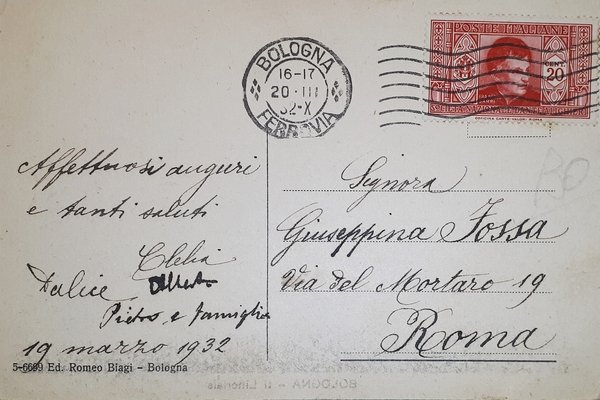 BOLOGNA
16-17
20·III
32-X
FERROVIA
POSTE ITALIANE
CENT.
20
Affettuosi auguri
e tanti saluti
Clelia
Alberto
Pietro e famiglia
19 marzo 1932
5-6699 Ed. Romeo Biagi - Bologna
Signora
Giuseppina Fossa
Via del Mortaro 19
Roma
BOLOGNA - Il Littoriale